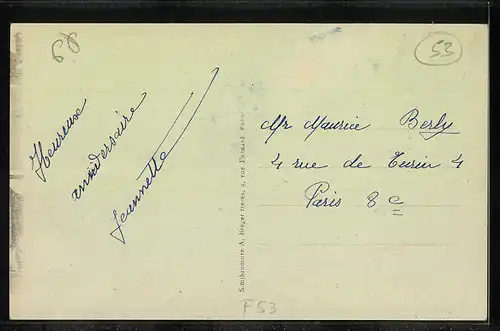 68
53
Heureux
anniversaire
Jeannette
Mr Maurice Berly
4 rue de Turin 4
Paris 8e
Semibromure A. Breger frères, 9, rue Thénard, Paris
F53